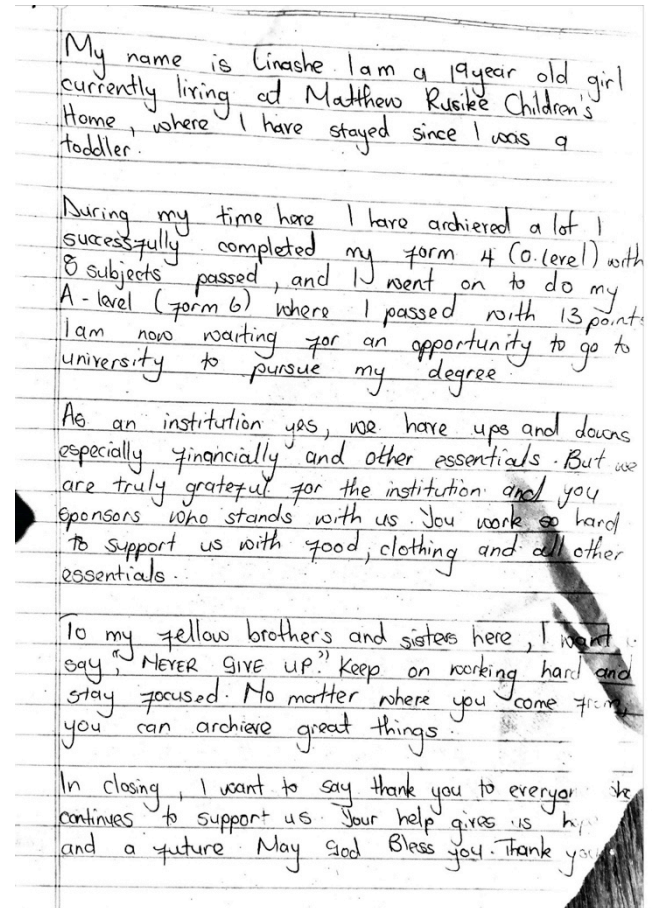 My name is Linashe. I am a 19 year old girl
currently living at Matthew Rusike Children's
Home, where I have stayed since I was a
toddler.
During my time here I have archieved a lot I
successfully completed my form 4 (O.level) with
8 subjects passed, and I went on to do my
A-level (form 6) where I passed with 13 points
I am now waiting for an opportunity to go to
university to pursue my degree
As an institution yes, we have ups and downs
especially financially and other essentials. But we
are truly grateful for the institution and you
sponsors who stands with us. You work so hard
to support us with food, clothing and all other
essentials.
To my fellow brothers and sisters here, I want
say, "NEVER GIVE UP." Keep on working hard and
stay focused. No matter where you come from,
you can archieve great things.
In closing, I want to say thank you to everyon
continues to support us. Your help gives is
and a future. May God Bless you. Thank you